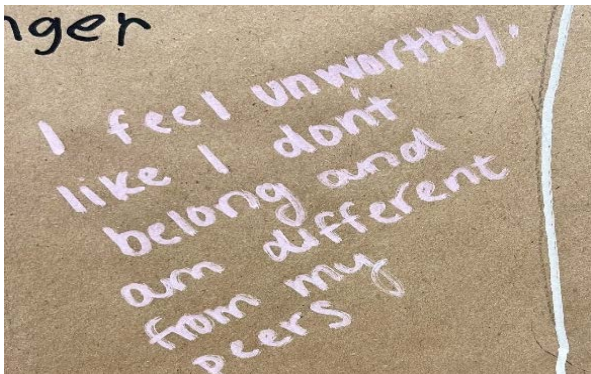 nger
I feel unworthy,
like I don't
belong and
am different
from my
peers